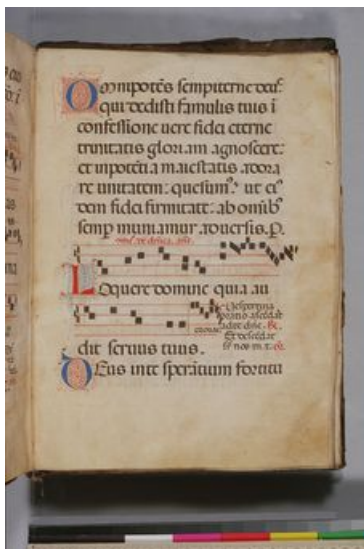 Omnipotēs sempiterne deuꝰ
qui dedisti famulis tuis ī
confessione uere fidei eterne
trinitatis gloriam agnoscere:
et in potētia maiestatis adora
re unitatem: quesumꝰ ut eiꝰ
dem fidei firmitate: ab omībꝰ
semp muniamur aduersis. P.
Loquere domine quia au
Uespertina
oratio ascēdat
ad te dn̄e.
Et descēdat
dit seruus tuus.
Deus in te sperātium fortitu